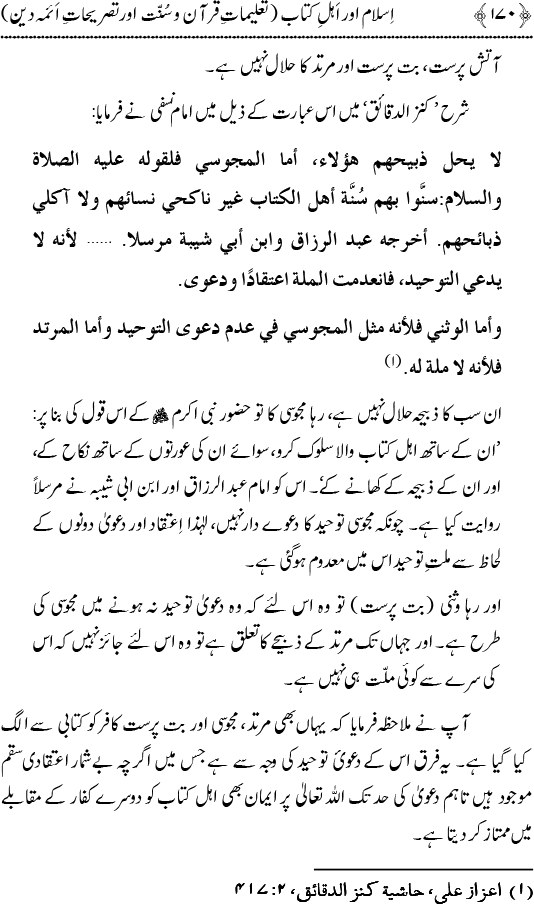 ﴿۱۷۰﴾ اِسلام اور اَہلِ کتاب (تعلیماتِ قرآن و سُنّت اور تصریحاتِ اَئمہ دین)
آتش پرست، بت پرست اور مرتد کا حلال نہیں ہے۔
شرح ’کنز الدقائق‘ میں اس عبارت کے ذیل میں امام نسفی نے فرمایا:
لا يحل ذبيحهم هؤلاء، أما المجوسي فلقوله عليه الصلاة
والسلام:سنَّوا بهم سُنَّة أهل الكتاب غير ناكحي نسائهم ولا آكلي
ذبائحهم. أخرجه عبد الرزاق وابن أبي شيبة مرسلا. ...... لأنه لا
يدعي التوحيد، فانعدمت الملة اعتقادًا ودعوى.
وأما الوثني فلأنه مثل المجوسي في عدم دعوى التوحيد وأما المرتد
فلأنه لا ملة له.(۱)
ان سب کا ذبیحہ حلال نہیں ہے، رہا مجوسی کا تو حضور نبی اکرم ﷺ کے اس قول کی بنا پر:
’ان کے ساتھ اہل کتاب والا سلوک کرو، سوائے ان کی عورتوں کے ساتھ نکاح کے،
اور ان کے ذبیحہ کے کھانے کے‘۔ اس کو امام عبد الرزاق اور ابن ابی شیبہ نے مرسلاً
روایت کیا ہے۔ چونکہ مجوسی توحید کا دعوے دار نہیں، لہٰذا اِعتقاد اور دعویٰ دونوں کے
لحاظ سے ملتِ توحید اس میں معدوم ہوگئی ہے۔
اور رہا وثنی (بت پرست) تو وہ اس لئے کہ وہ دعویٰ توحید نہ ہونے میں مجوسی کی
طرح ہے۔ اور جہاں تک مرتد کے ذبیحے کا تعلق ہے تو وہ اس لئے جائز نہیں کہ اس
کی سرے سے کوئی ملّت ہی نہیں ہے۔
آپ نے ملاحظہ فرمایا کہ یہاں بھی مرتد، مجوسی اور بت پرست کافر کو کتابی سے الگ
کیا گیا ہے۔ یہ فرق اس کے دعویٰ توحید کی وجہ سے ہے جس میں اگرچہ بے شمار اعتقادی سقم
موجود ہیں تاہم دعویٰ کی حد تک اللہ تعالیٰ پر ایمان بھی اہل کتاب کو دوسرے کفار کے مقابلے
میں ممتاز کر دیتا ہے۔
(۱) اعزاز علی، حاشیة کنز الدقائق، ۲: ۴۱۷